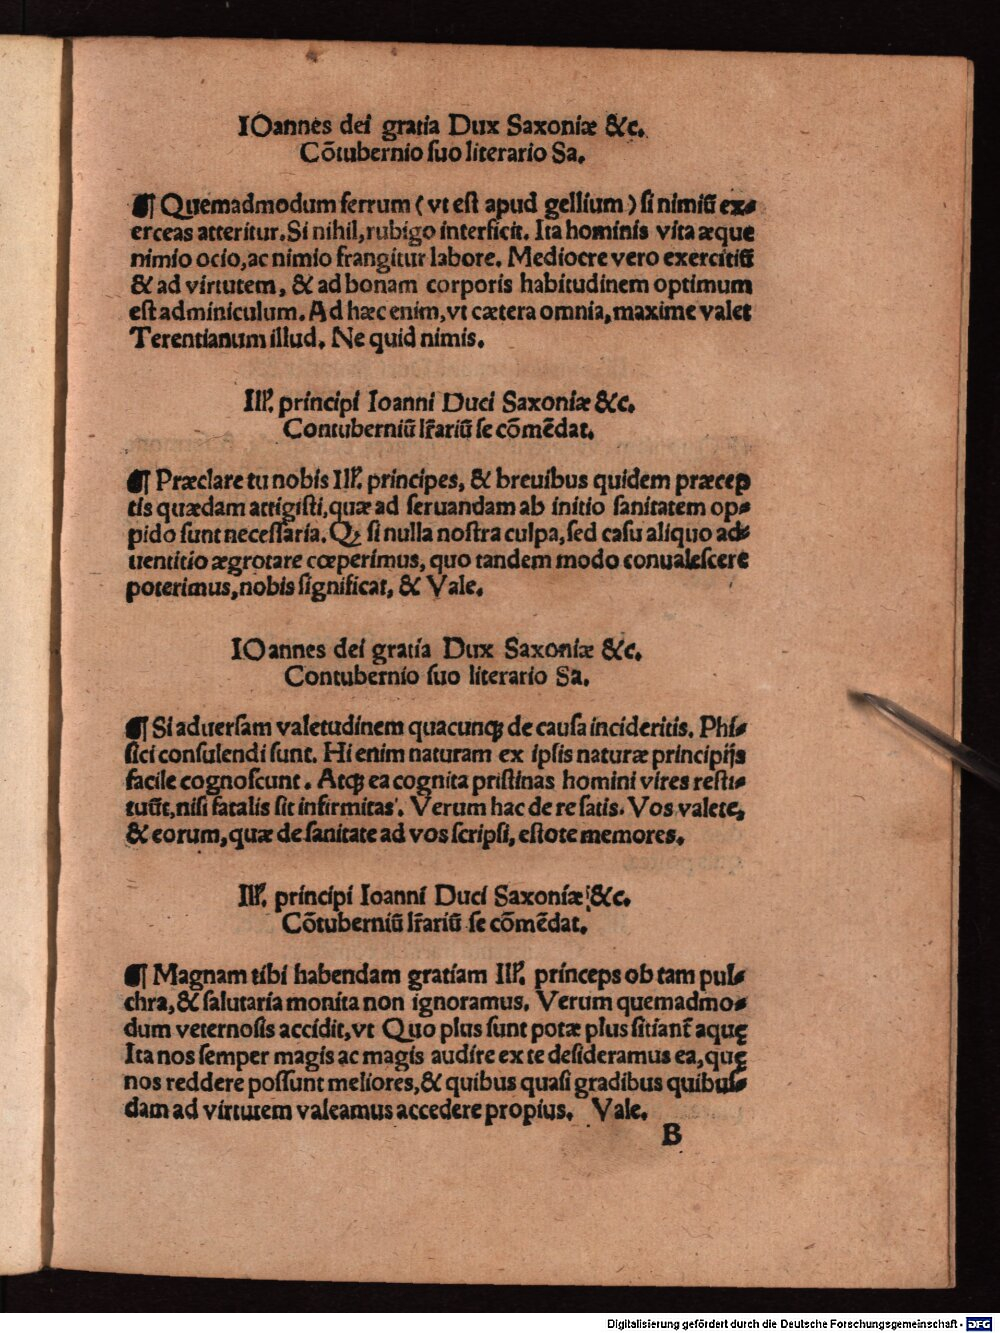 IOannes dei gratia Dux Saxoniæ &c.
Cõtubernio ſuo literario Sa.
¶ Quemadmodum ferrum ( vt eſt apud gellium ) ſi nimiũ ex⸗
erceas atteritur. Si nihil, rubigo interficit. Ita hominis vita æque
nimio ocio, ac nimio frangitur labore. Mediocre vero exercitiũ
& ad virtutem, & ad bonam corporis habitudinem optimum
eſt adminiculum. Ad hæc enim, vt cætera omnia, maxime valet
Terentianum illud. Ne quid nimis.
Ill̃. principi Ioanni Duci Saxoniæ &c.
Contuberniũ lr̃ariũ ſe cõmẽdat.
¶ Præclare tu nobis Ill̃. principes, & breuibus quidem præcep
tis quædam attigiſti, quæ ad ſeruandam ab initio ſanitatem op⸗
pido ſunt neceſſaria. Qꝫ ſi nulla noſtra culpa, ſed caſu aliquo ad⸗
uentitio ægrotare cœperimus, quo tandem modo conualeſcere
poterimus, nobis ſignificat, & Vale.
IOannes dei gratia Dux Saxoniæ &c.
Contubernio ſuo literario Sa.
¶ Si aduerſam valetudinem quacunqꝫ de cauſa incideritis. Phi⸗
ſici conſulendi ſunt. Hi enim naturam ex ipſis naturæ principijs
facile cognoſcunt. Atqꝫ ea cognita priſtinas homini vires reſti⸗
tuũt, niſi fatalis ſit infirmitas. Verum hac de re ſatis. Vos valete,
& eorum, quæ de ſanitate ad vos ſcripſi, eſtote memores.
Ill̃. principi Ioanni Duci Saxoniæ &c.
Cõtuberniũ lr̃ariũ ſe cõmẽdat.
¶ Magnam tibi habendam gratiam Ill̃. princeps ob tam pul⸗
chra, & ſalutaria monita non ignoramus. Verum quemadmo⸗
dum veternoſis accidit, vt Quo plus ſunt potæ plus ſitiant̃ aquę
Ita nos ſemper magis ac magis audire ex te deſideramus ea, quę
nos reddere poſſunt meliores, & quibus quaſi gradibus quibuſ⸗
dam ad virtutem valeamus accedere propius. Vale.
B
Digitalisierung gefördert durch die Deutsche Forschungsgemeinschaft - DFG